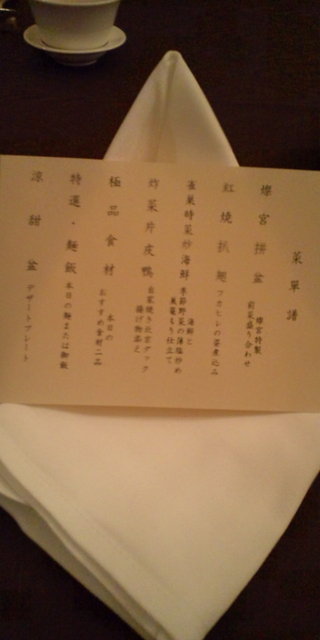 菜單譜
燦宮拼盆 燦宮特製
前菜盛り合わせ
紅燒扒翅 フカヒレの姿煮込み
雀巣時菜炒海鮮 海鮮と
季節野菜の薄塩炒め
巣籠もり仕立て
炸菜片皮鴨 自家焼き北京ダック
揚げ物添え
極品食材 本日の
おすすめ食材二品
特選・麺飯 本日の麺または御飯
涼甜盆 デザートプレート